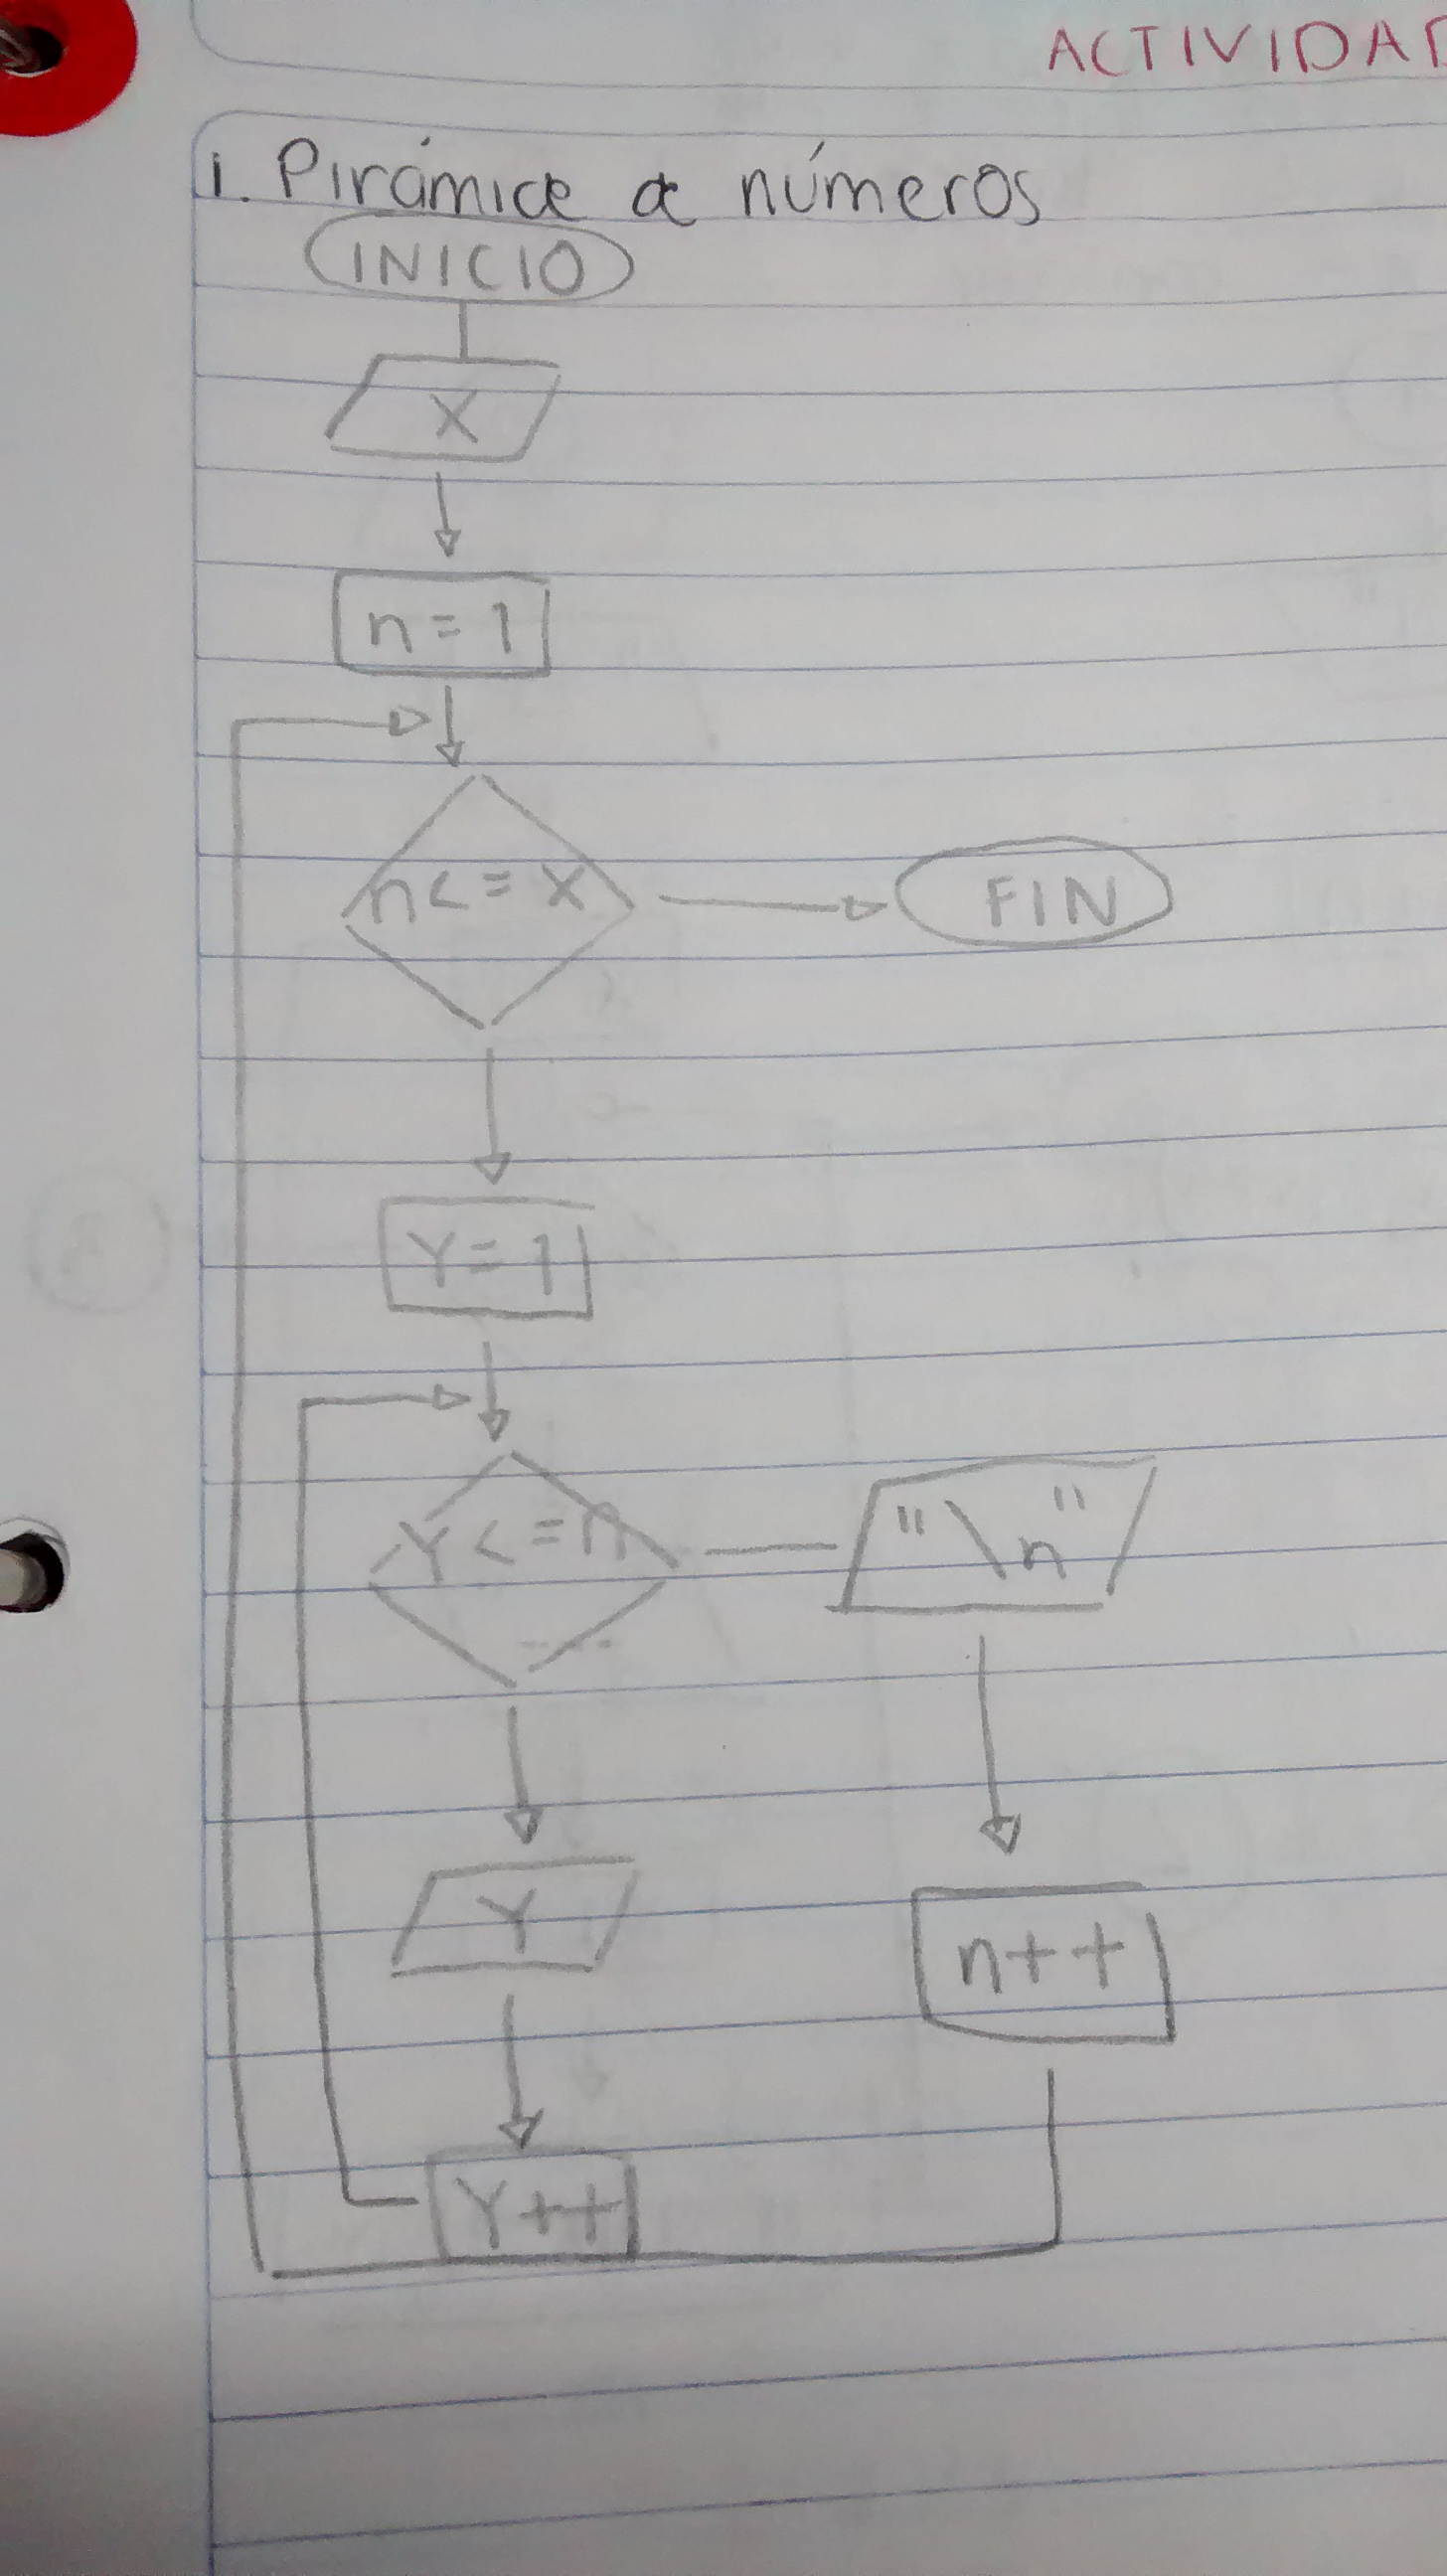 ACTIVIDAD
1. Pirámide de números
INICIO
X
n = 1
n <= X
FIN
Y = 1
Y <= n
"\n"
Y
n++
Y++